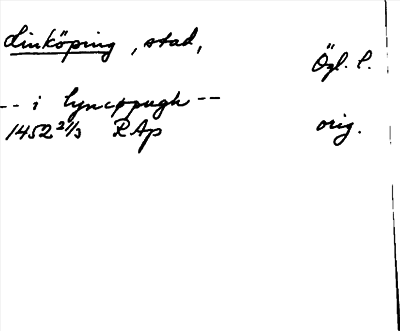 Linköping, stad, Ögl. l.
-- i lyncøpugh --
1452 21/3 RAp orig.